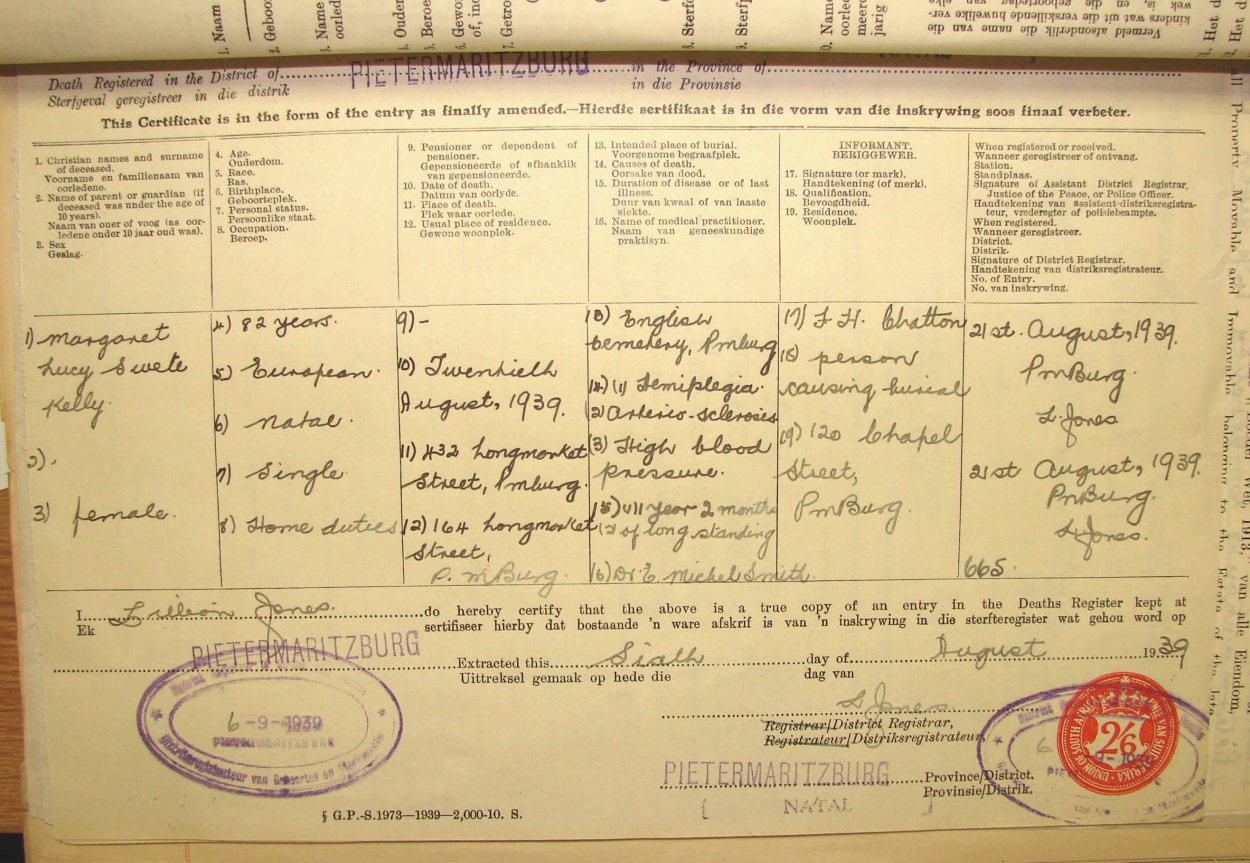 1. Naam
2. Geboor
3. Name
oorled
4. Ouder
5. Beroe
6. Gewo
of, ind
7. Getro
8. Sterfd
9. Sterfp
10. Name
oorlee
meerd
jarig
Vermeld afsonderlik die name van die
kinders wat uit die verskillende huwelike ver-
wek is, en die geboortedag van elke
Death Registered in the District of PIETERMARITZBURG in the Province of
Sterfgeval geregistreer in die distrik in die Provinsie
This Certificate is in the form of the entry as finally amended.—Hierdie sertifikaat is in die vorm van die inskrywing soos finaal verbeter.
1. Christian names and surname
of deceased.
Voorname en familienaam van
oorledene.
2. Name of parent or guardian (if
deceased was under the age of
10 years).
Naam van ouer of voog (as oor-
ledene onder 10 jaar oud was).
3. Sex
Geslag.
4. Age.
Ouderdom.
5. Race.
Ras.
6. Birthplace.
Geboorteplek.
7. Personal status.
Persoonlike staat.
8. Occupation.
Beroep.
9. Pensioner or dependent of
pensioner.
Gepensioeneerde of afhanklik
van gepensioeneerde.
10. Date of death.
Datum van oorlyde.
11. Place of death.
Plek waar oorlede.
12. Usual place of residence.
Gewone woonplek.
13. Intended place of burial.
Voorgenome begraafplek.
14. Causes of death.
Oorsake van dood.
15. Duration of disease or of last
illness.
Duur van kwaal of van laaste
siekte.
16. Name of medical practitioner.
Naam van geneeskundige
praktisyn.
INFORMANT.
BERIGGEWER.
17. Signature (or mark).
Handtekening (of merk).
18. Qualification.
Bevoegdheid.
19. Residence.
Woonplek.
When registered or received.
Wanneer geregistreer of ontvang.
Station.
Standplaas.
Signature of Assistant District Registrar,
Justice of the Peace, or Police Officer.
Handtekening van assistent-distriksregistra-
teur, vrederegter of polisiebeampte.
When registered.
Wanneer geregistreer.
District.
Distrik.
Signature of District Registrar.
Handtekening van distriksregistrateur.
No. of Entry.
No. van inskrywing.
1) Margaret
Lucy Swete
Kelly.
2).
3) female.
4) 82 years.
5) European.
6) Natal.
7) Single
8) Home duties
9) -
10) Twentieth
August, 1939.
11) 432 Longmarket
Street, Pmburg.
12) 164 Longmarket
Street,
P. mBurg.
13) English
Cemetery, Pmburg
14) (1) Hemiplegia.
(2) Arterio-sclerosis
(3) High blood
pressure.
15) (1) 1 year 2 months
(2 of long standing
16) Dr E. Michel Smith.
17) F H. Chatton
18) person
causing burial
19) 120 Chapel
Street,
PmBurg.
21st. August, 1939.
PmBurg.
L. Jones
21st August, 1939.
PmBurg.
L Jones.
665.
I Lilleon Jones. do hereby certify that the above is a true copy of an entry in the Deaths Register kept at
Ek sertifiseer hierby dat bostaande 'n ware afskrif is van 'n inskrywing in die sterfteregister wat gehou word op
PIETERMARITZBURG Extracted this Sixth day of August 1939
Uittreksel gemaak op hede die dag van
L Jones
Registrar/District Registrar,
Registrateur/Distriksregistrateur,
6-9-1939
PIETERMARITZBURG
Distriksregistrateur van Geboortes en Sterfgevalle
UNION OF SOUTH AFRICA
UNIE VAN SUID-AFRIKA
2/6
PIETERMARITZBURG Province/District.
NATAL Provinsie/Distrik.
§ G.P.-S.1973—1939—2,000-10. S.